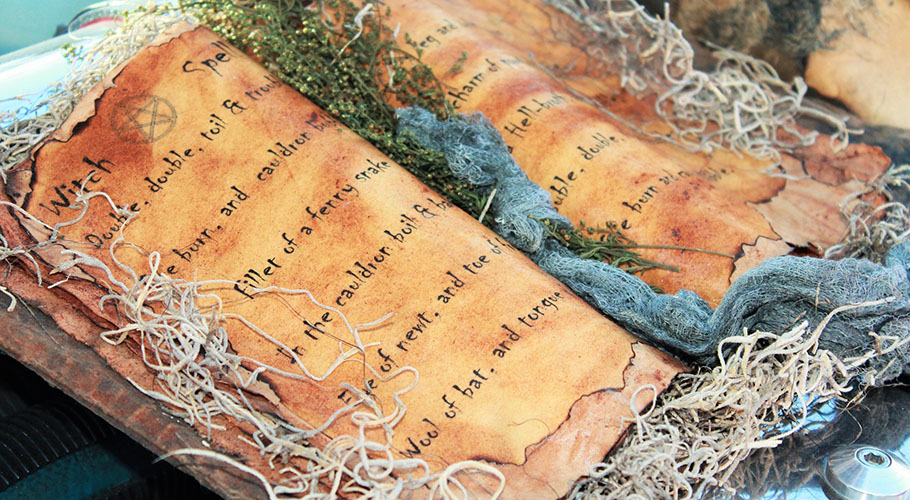 Witch Spell
Double, double, toil & trou
re burn, and cauldron bu
Fillet of a ferny snake
In the cauldron boil & b
Eye of newt, and toe of
Wool of bat, and torgue
en and
charm of
Hell-br
uble, double,
e burn and